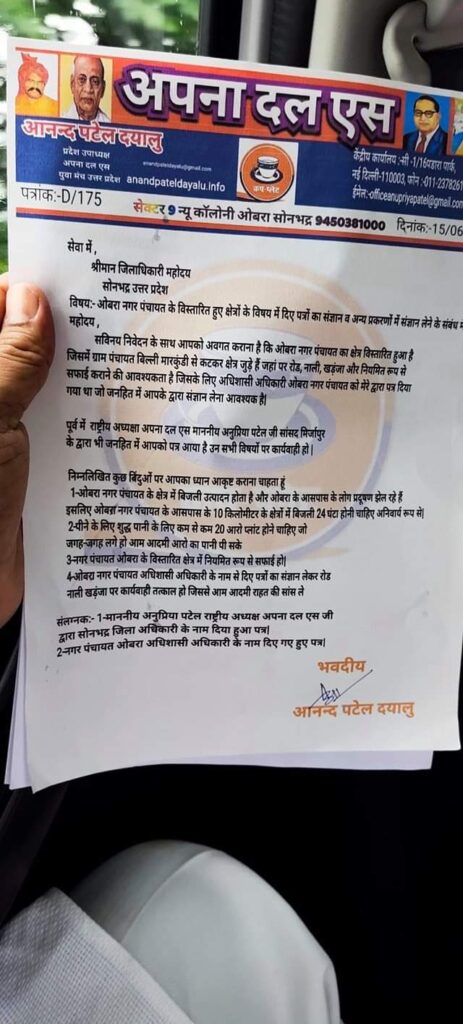 अपना दल एस
आनन्द पटेल दयालु
प्रदेश उपाध्यक्ष
अपना दल एस
युवा मंच उत्तर प्रदेश
anandpateldayalu@gmail.com
anandpateldayalu.info
कप-प्लेट
केंद्रीय कार्यालय :सी -1/16पंडारा पार्क,
नई दिल्ली-110003, फोन :-011-2378261
ईमेल:-officeanupriyapatel@gmail.com
पत्रांक:-D/175
सेक्टर 9 न्यू कॉलोनी ओबरा सोनभद्र 9450381000
दिनांक:-15/06
सेवा में ,
श्रीमान जिलाधिकारी महोदय
सोनभद्र उत्तर प्रदेश
विषय:- ओबरा नगर पंचायत के विस्तारित हुए क्षेत्रों के विषय में दिए पत्रों का संज्ञान व अन्य प्रकरणों में संज्ञान लेने के संबंध म
महोदय ,
सविनय निवेदन के साथ आपको अवगत कराना है कि ओबरा नगर पंचायत का क्षेत्र विस्तारित हुआ है
जिसमें ग्राम पंचायत बिल्ली मारकुंडी से कटकर क्षेत्र जुड़े हैं जहां पर रोड, नाली, खड़ंजा और नियमित रूप से
सफाई कराने की आवश्यकता है जिसके लिए अधिशासी अधिकारी ओबरा नगर पंचायत को मेरे द्वारा पत्र दिया
गया था जो जनहित में आपके द्वारा संज्ञान लेना आवश्यक है|
पूर्व में राष्ट्रीय अध्यक्षा अपना दल एस माननीय अनुप्रिया पटेल जी सांसद मिर्जापुर
के द्वारा भी जनहित में आपको पत्र आया है उन सभी विषयों पर कार्यवाही हो |
निम्नलिखित कुछ बिंदुओं पर आपका ध्यान आकृष्ट कराना चाहता हूं
1-ओबरा नगर पंचायत के क्षेत्र में बिजली उत्पादन होता है और ओबरा के आसपास के लोग प्रदूषण झेल रहे हैं
इसलिए ओबरा नगर पंचायत के आसपास के 10 किलोमीटर के क्षेत्रों में बिजली 24 घंटा होनी चाहिए अनिवार्य रूप से|
2-पीने के लिए शुद्ध पानी के लिए कम से कम 20 आरो प्लांट होने चाहिए जो
जगह-जगह लगे हो आम आदमी आरो का पानी पी सके
3-नगर पंचायत ओबरा के विस्तारित क्षेत्र में नियमित रूप से सफाई हो|
4-ओबरा नगर पंचायत अधिशासी अधिकारी के नाम से दिए पत्रों का संज्ञान लेकर रोड
नाली खड़ंजा पर कार्यवाही तत्काल हो जिससे आम आदमी राहत की सांस ले
संलग्नक:- 1-माननीय अनुप्रिया पटेल राष्ट्रीय अध्यक्ष अपना दल एस जी
द्वारा सोनभद्र जिला अधिकारी के नाम दिया हुआ पत्र|
2-नगर पंचायत ओबरा अधिशासी अधिकारी के नाम दिए गए हुए पत्र|
भवदीय
आनन्द पटेल दयालु